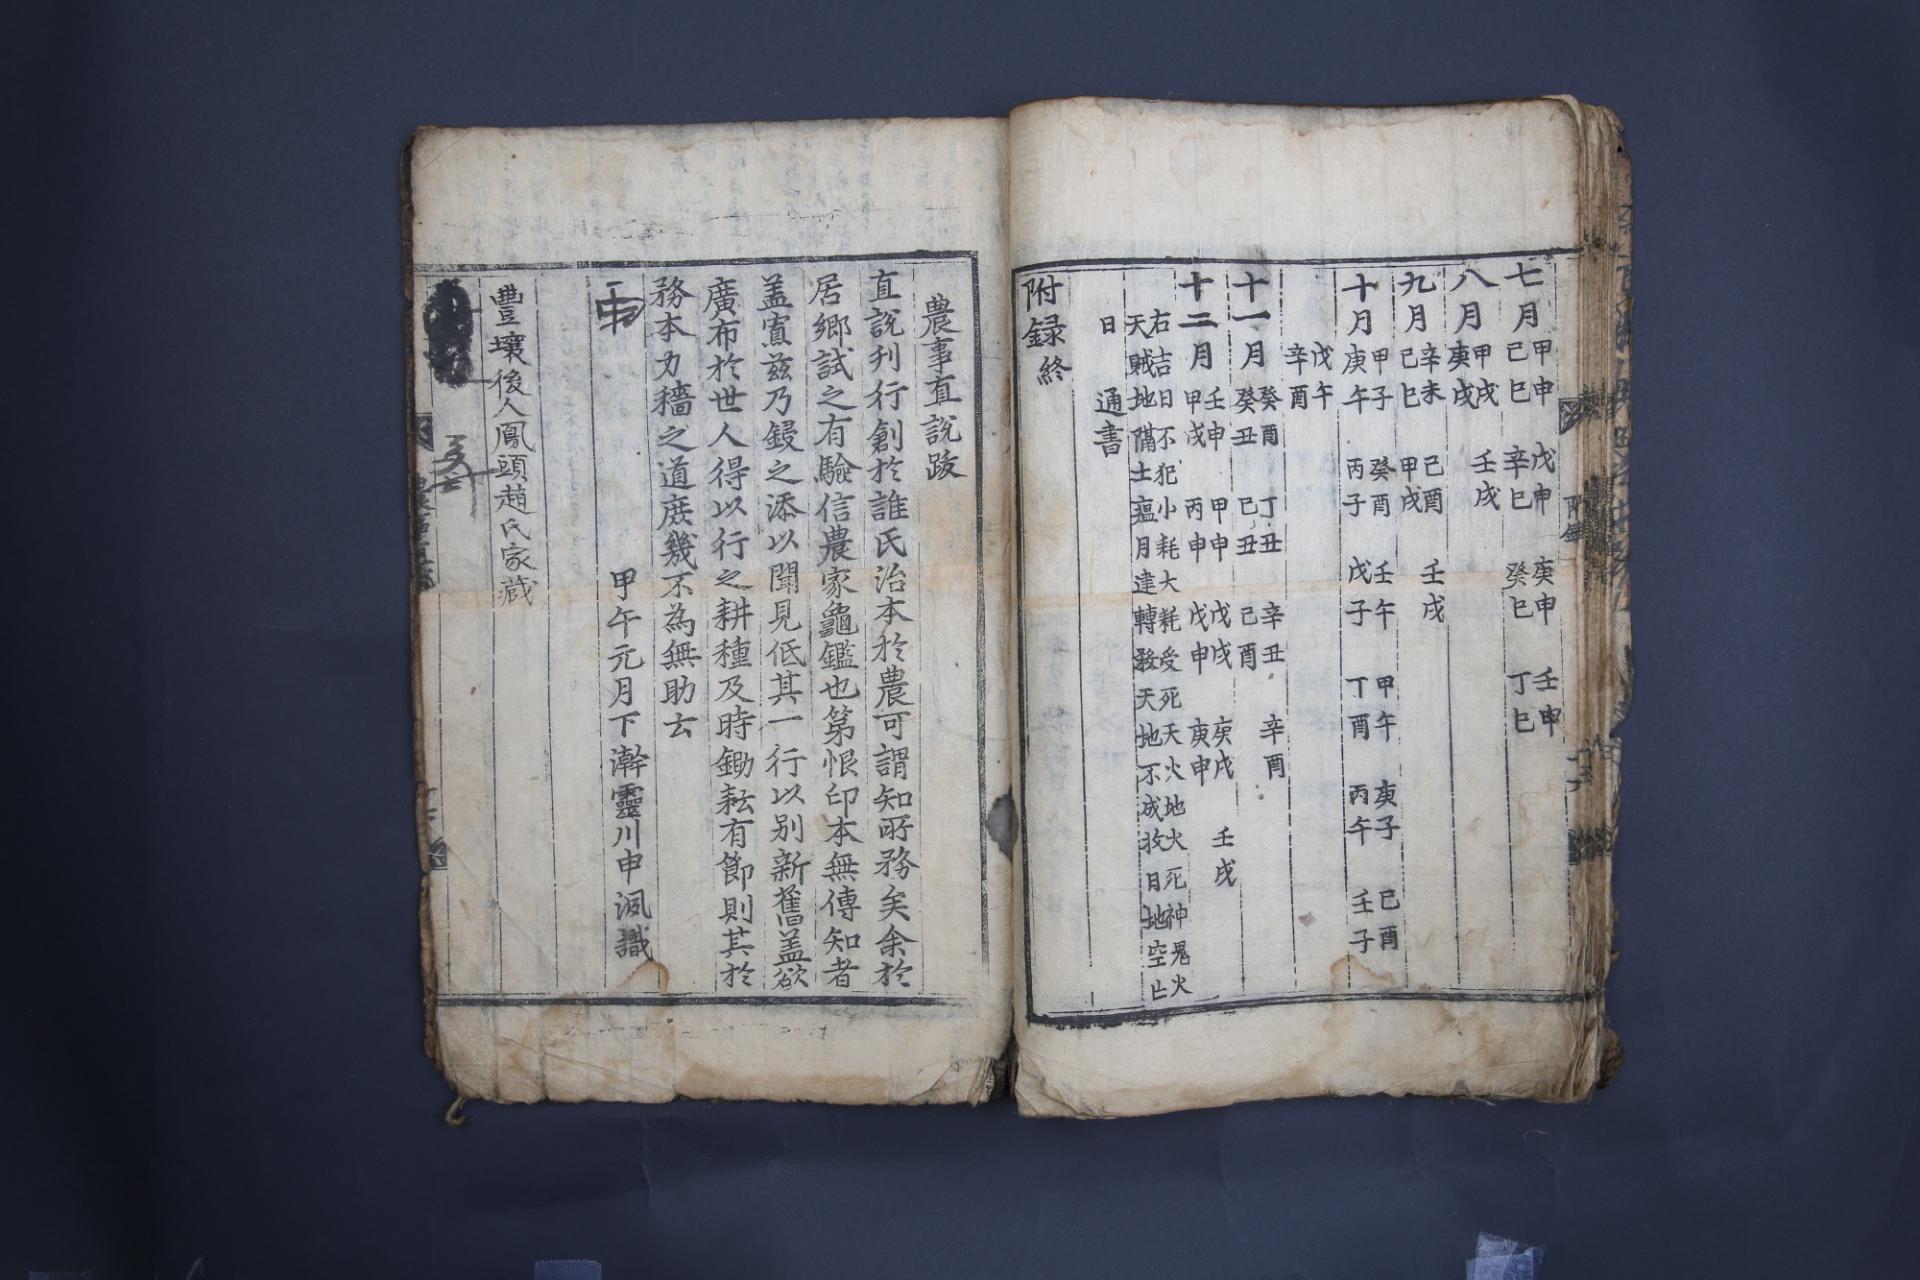 七月 甲申 戊申 庚申 壬申
己巳 辛巳 癸巳 丁巳
八月 甲戌 壬戌
庚戌
九月 辛未 己酉 壬戌
己巳 甲戌
十月 甲子 癸酉 壬午 甲午 庚子 己酉
庚午 丙子 戊子 丁酉 丙午 壬子
戊午
辛酉
十一月 癸酉 丁丑 辛丑 辛酉
癸丑 己丑 己酉
十二月 壬申 甲申 戊戌 庚戌 壬戌
甲戌 丙申 戊申 庚申
右吉日不犯小耗大耗受死天火地火死神鬼火
天賊地隔土瘟月建轉殺天地不成收日地空亡
日 通書
附録終
農事直說跋
直說刋行創於誰氏治本於農可謂知所務矣余於
居鄉試之有驗信農家龜鑑也第恨印本無傳知者
盖寡茲乃鋟之添以聞見低其一行以別新舊盖欲
廣布於世人得以行之耕種及時鋤耘有節則其於
務本力穡之道庶幾不為無助云
甲午元月下澣靈川申洬識
豊壤後人鳳頭趙氏家藏